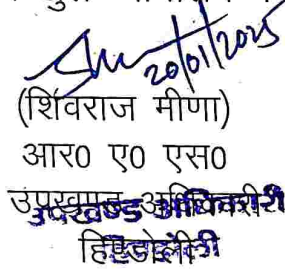 20/01/2025
(शिवराज मीणा)
आर0 ए0 एस0
उपखण्ड अधिकारी
हिण्डोली